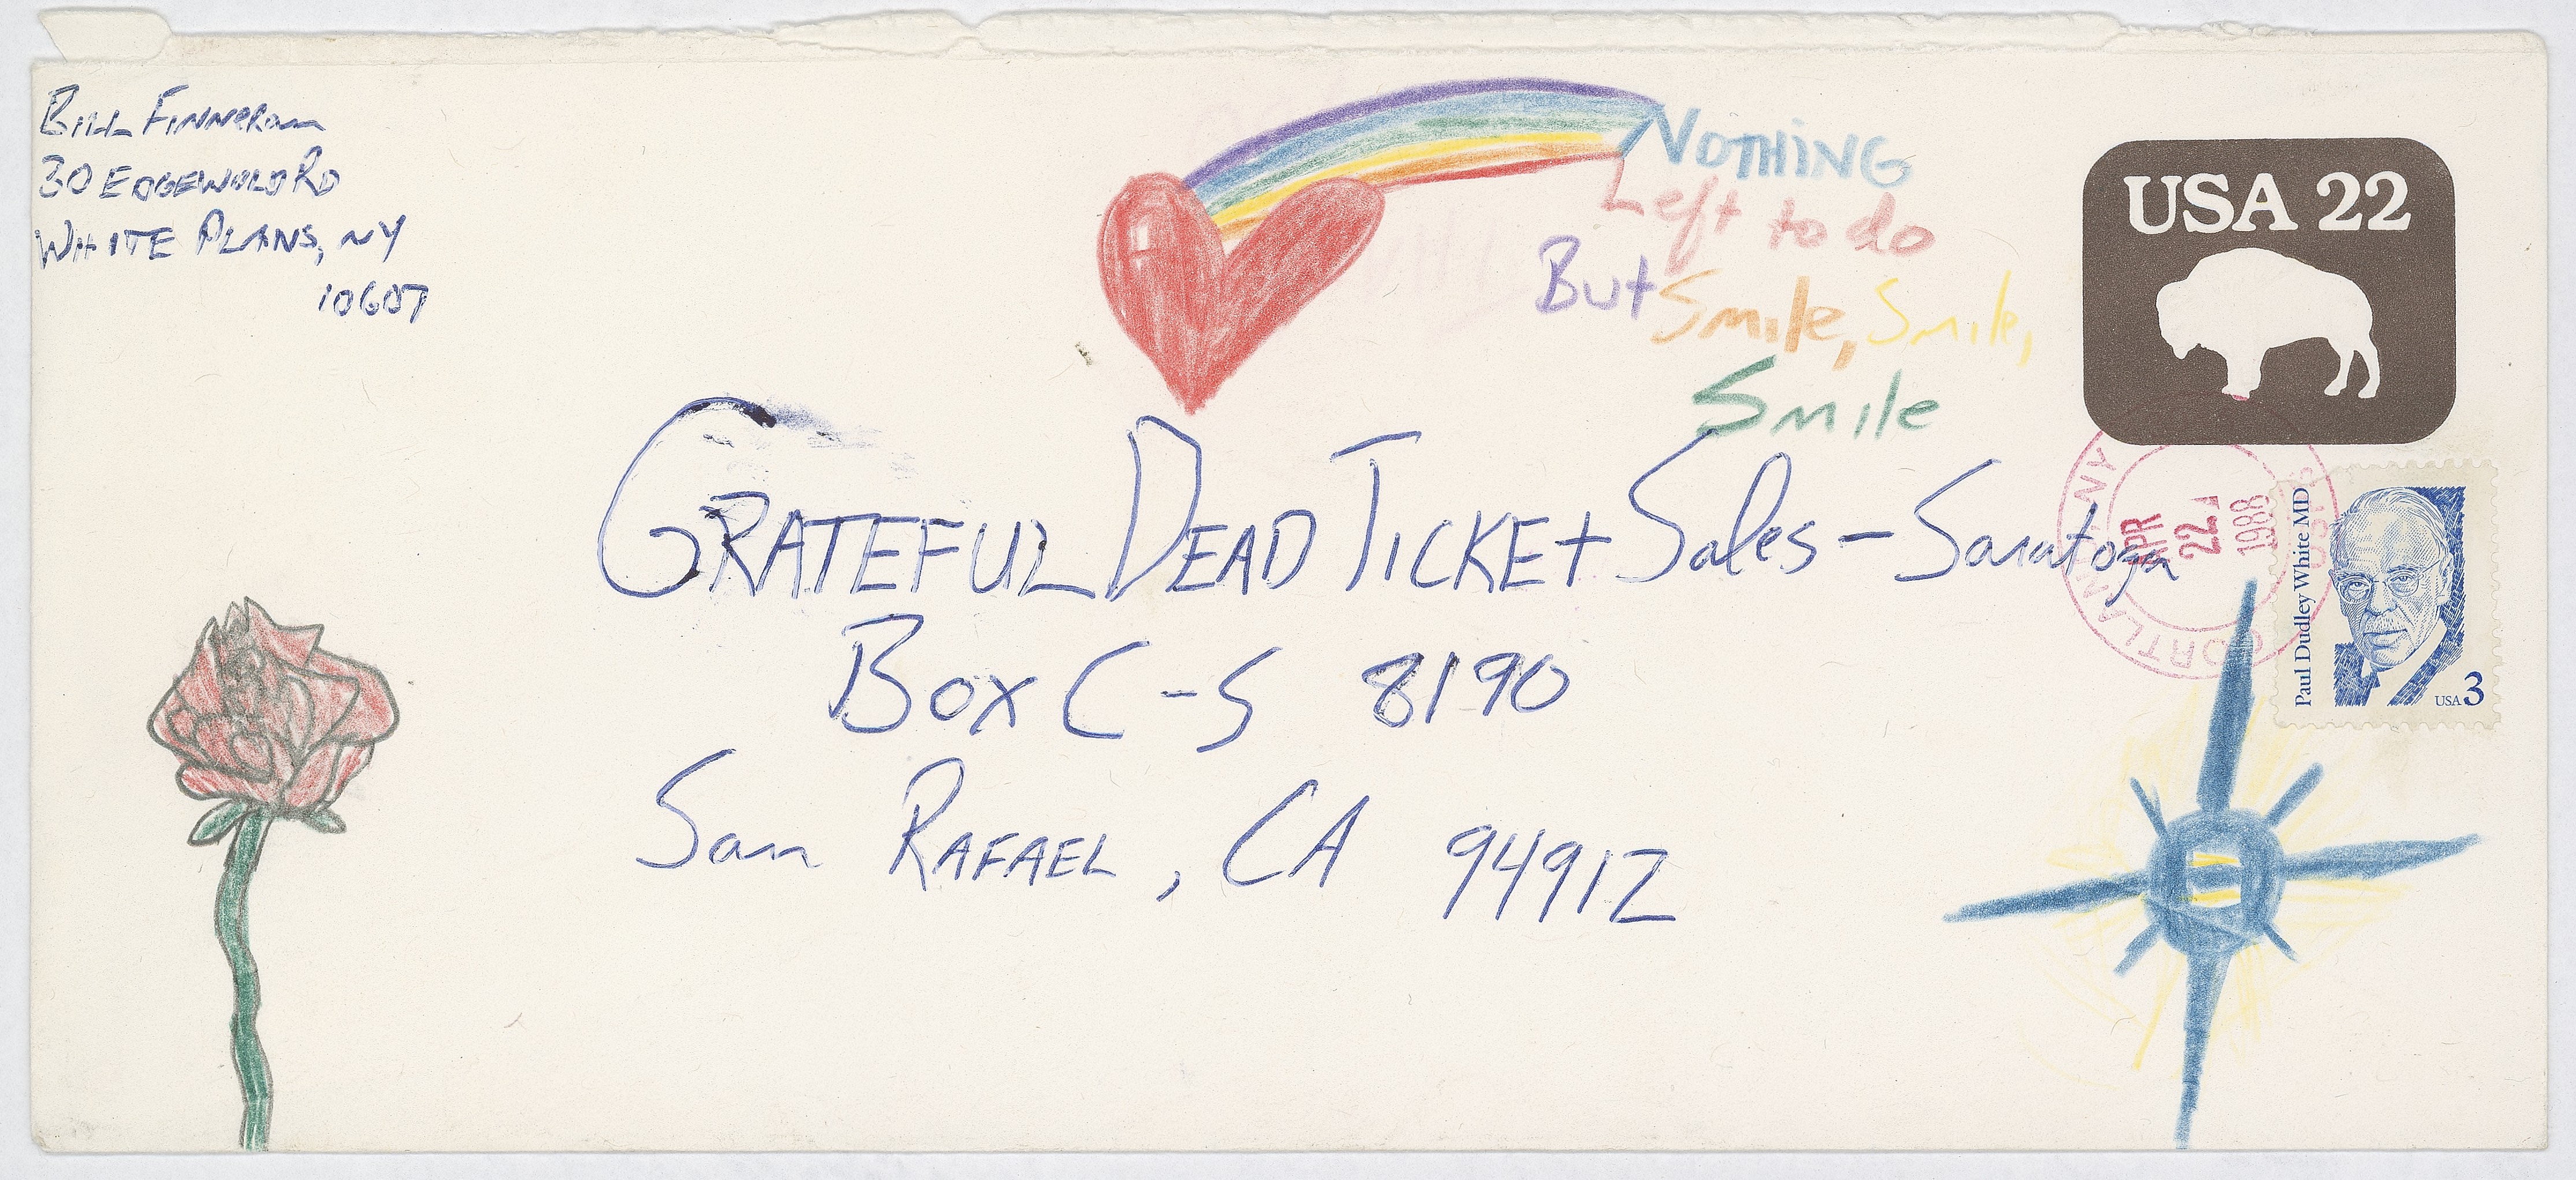 Bill Finneran
30 Edgewold Rd
White Plans, NY
10607
Nothing
Left to do
But Smile, Smile,
Smile
USA 22
Grateful Dead Ticket Sales - Saratoga
Box C-S 8190
San Rafael, CA 94912
APR
22
1988
Paul Dudley White MD
USA 3